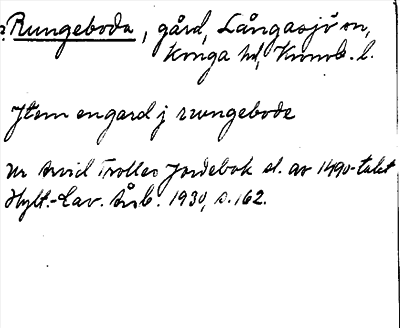 Rungeboda, gård, Långasjö sn,
Konga hd, Kronob. l.
Jtem en gard j rungebode
Ur Arvid Trolles Jordebok sl. av 1490-talet
Hylt.-Cav. Årsb. 1930, s. 162.